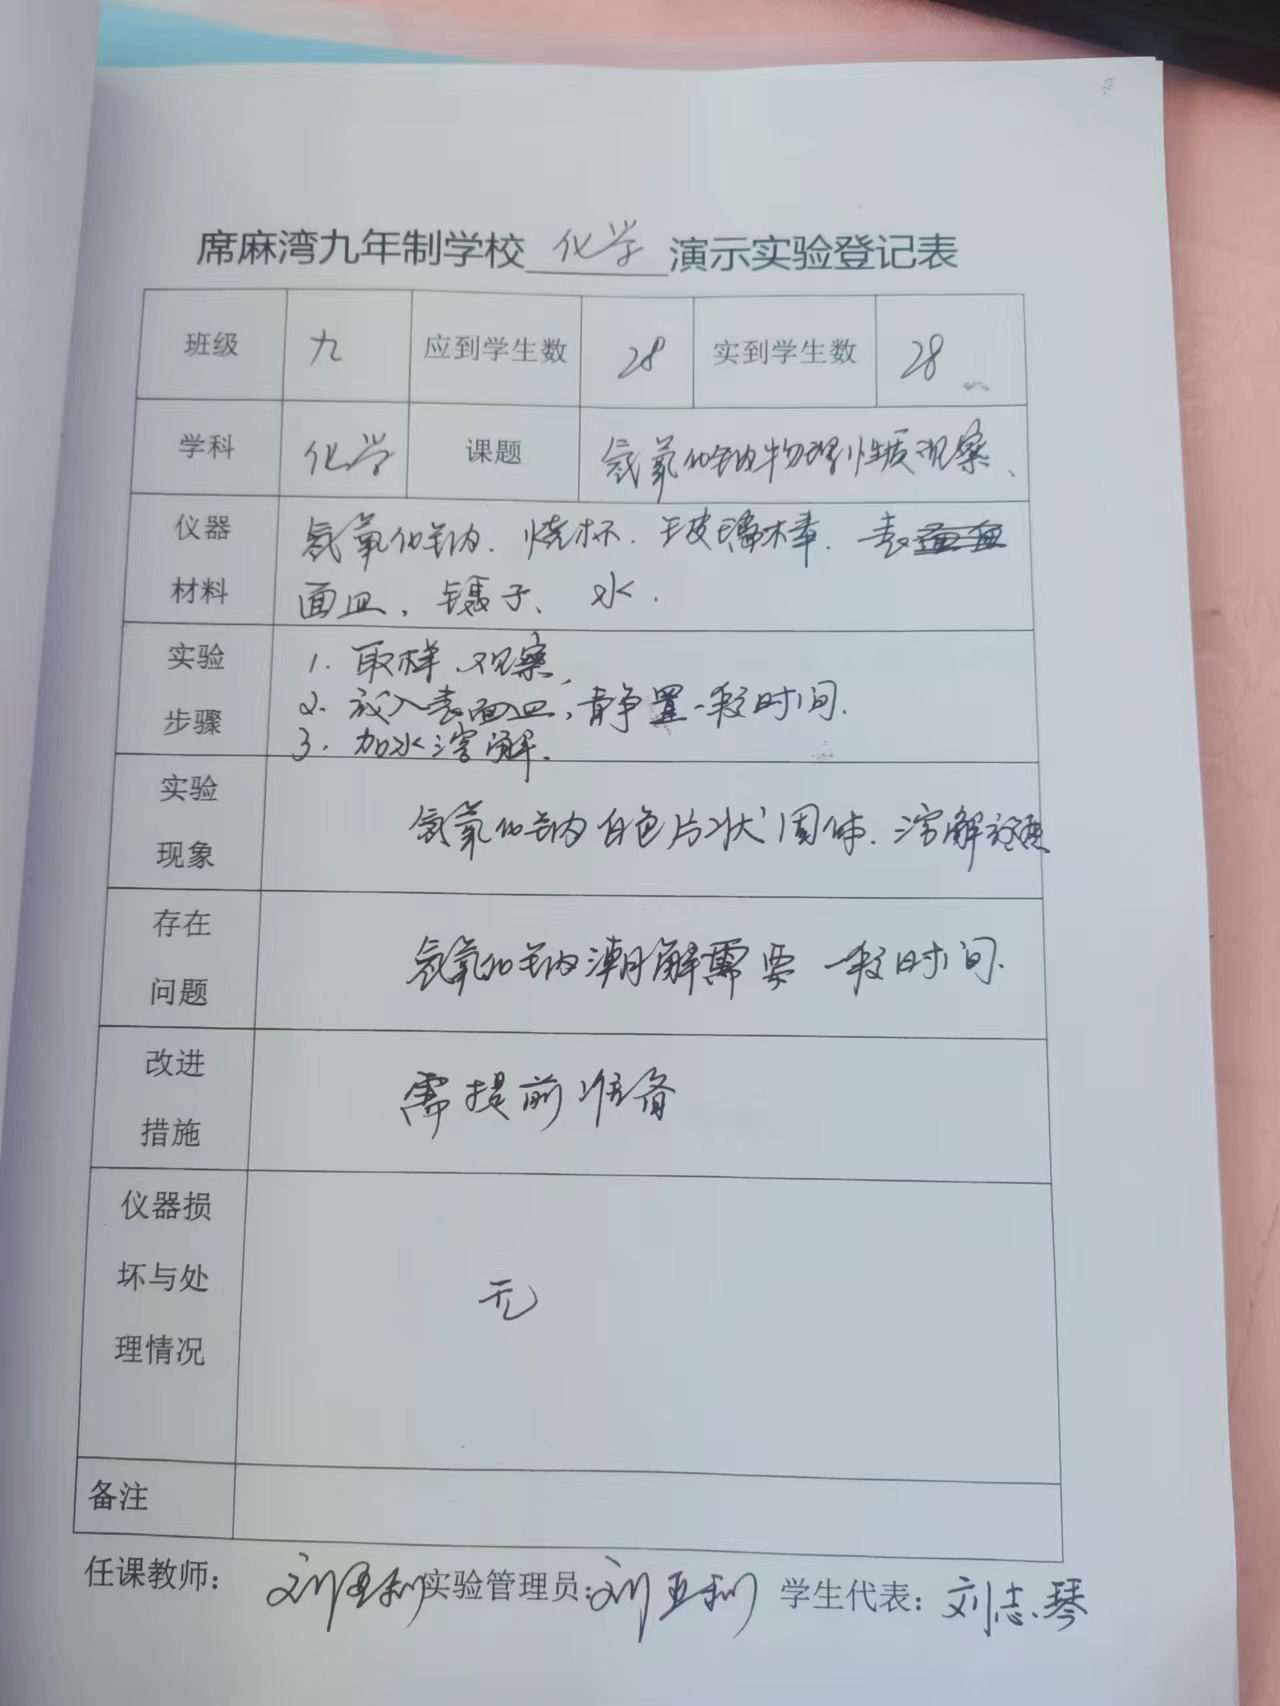 席麻湾九年制学校 化学 演示实验登记表
班级 九 应到学生数 28 实到学生数 28
学科 化学 课题 氢氧化钠物理性质观察、
仪器材料 氢氧化钠. 烧杯. 玻璃棒. 表
面皿, 镊子、水.
实验步骤 1. 取样、观察,
2. 放入表面皿, 静置一段时间.
3. 加水溶解.
实验现象 氢氧化钠白色片状固体. 溶解放热
存在问题 氢氧化钠潮解需要一段时间.
改进措施 需提前准备
仪器损坏与处理情况 无
备注
任课教师: 刘亚利 实验管理员: 刘亚利 学生代表: 刘志琴